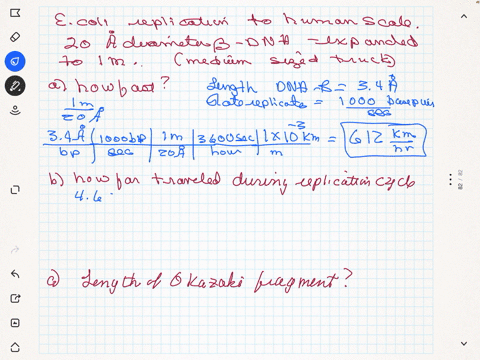 E. coli replication to human scale.
20 Å diameter β-DNA - expanded
to 1m. (medium sized truck)
a) how fast? Length DNA-B = 3.4 Å
1m Rate replicate = 1000 base pair
20 Å sec
3.4 Å | 1000 bp | 1m | 3600 sec | 1 x 10^-3 km = 612 km
bp | sec | 20 Å | hour | m hr
b) how far traveled during replication cycle
4.6
c) Length of Okazaki fragment?